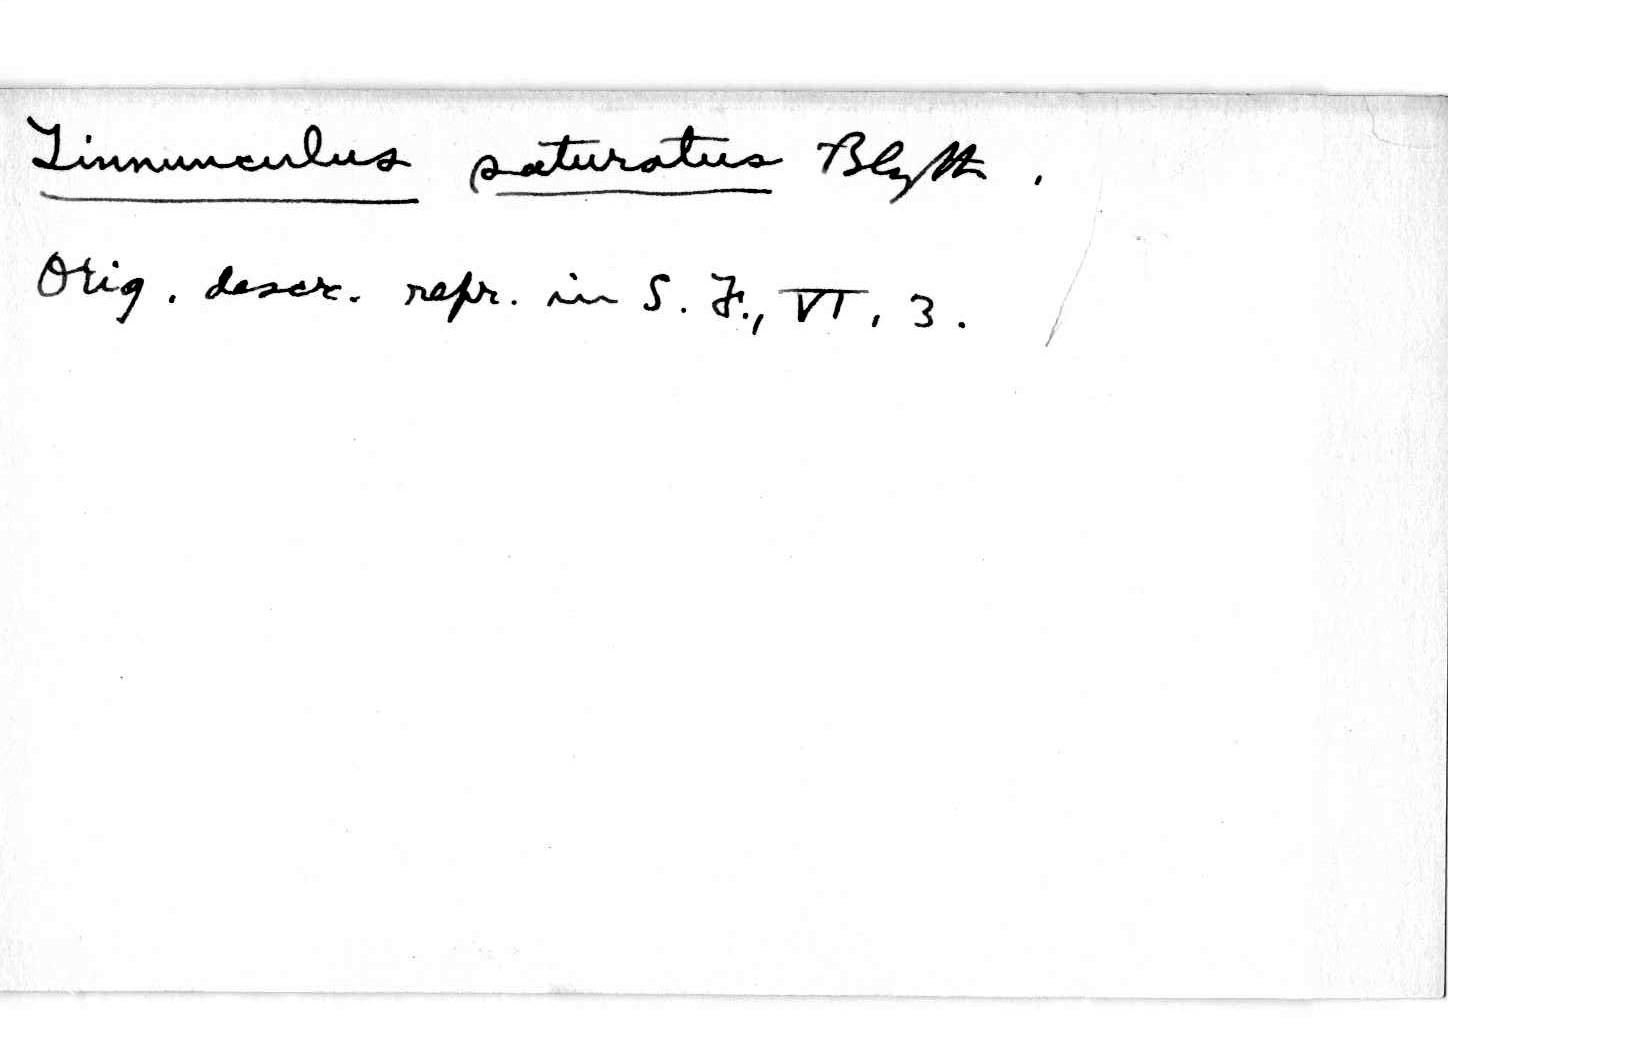 Tinnunculus saturatus Blyth.
Orig. descr. repr. in S. F., VI, 3.